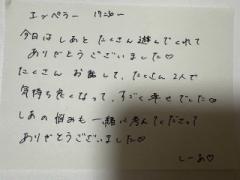 エンペラー
今日は しあと たくさん 遊んでくれて
ありがとうございました♡
たくさん お話して、たくさん 2人で
気持ち良くなって、すごく幸せでした♡
しあの悩みも 一緒に考えてくださって
ありがとうございました♡
しーあ♡